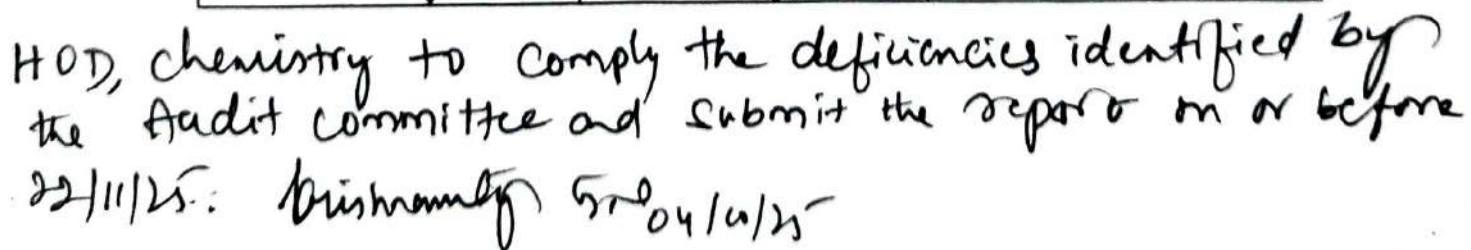 HOD, Chemistry to comply the deficiencies identified by
the Audit committee and submit the report on or before
22/11/25.